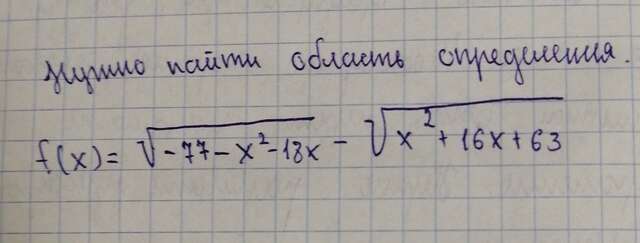 нужно найти область определения.
f(x)= √-77-x²-18x - √x²+16x+63